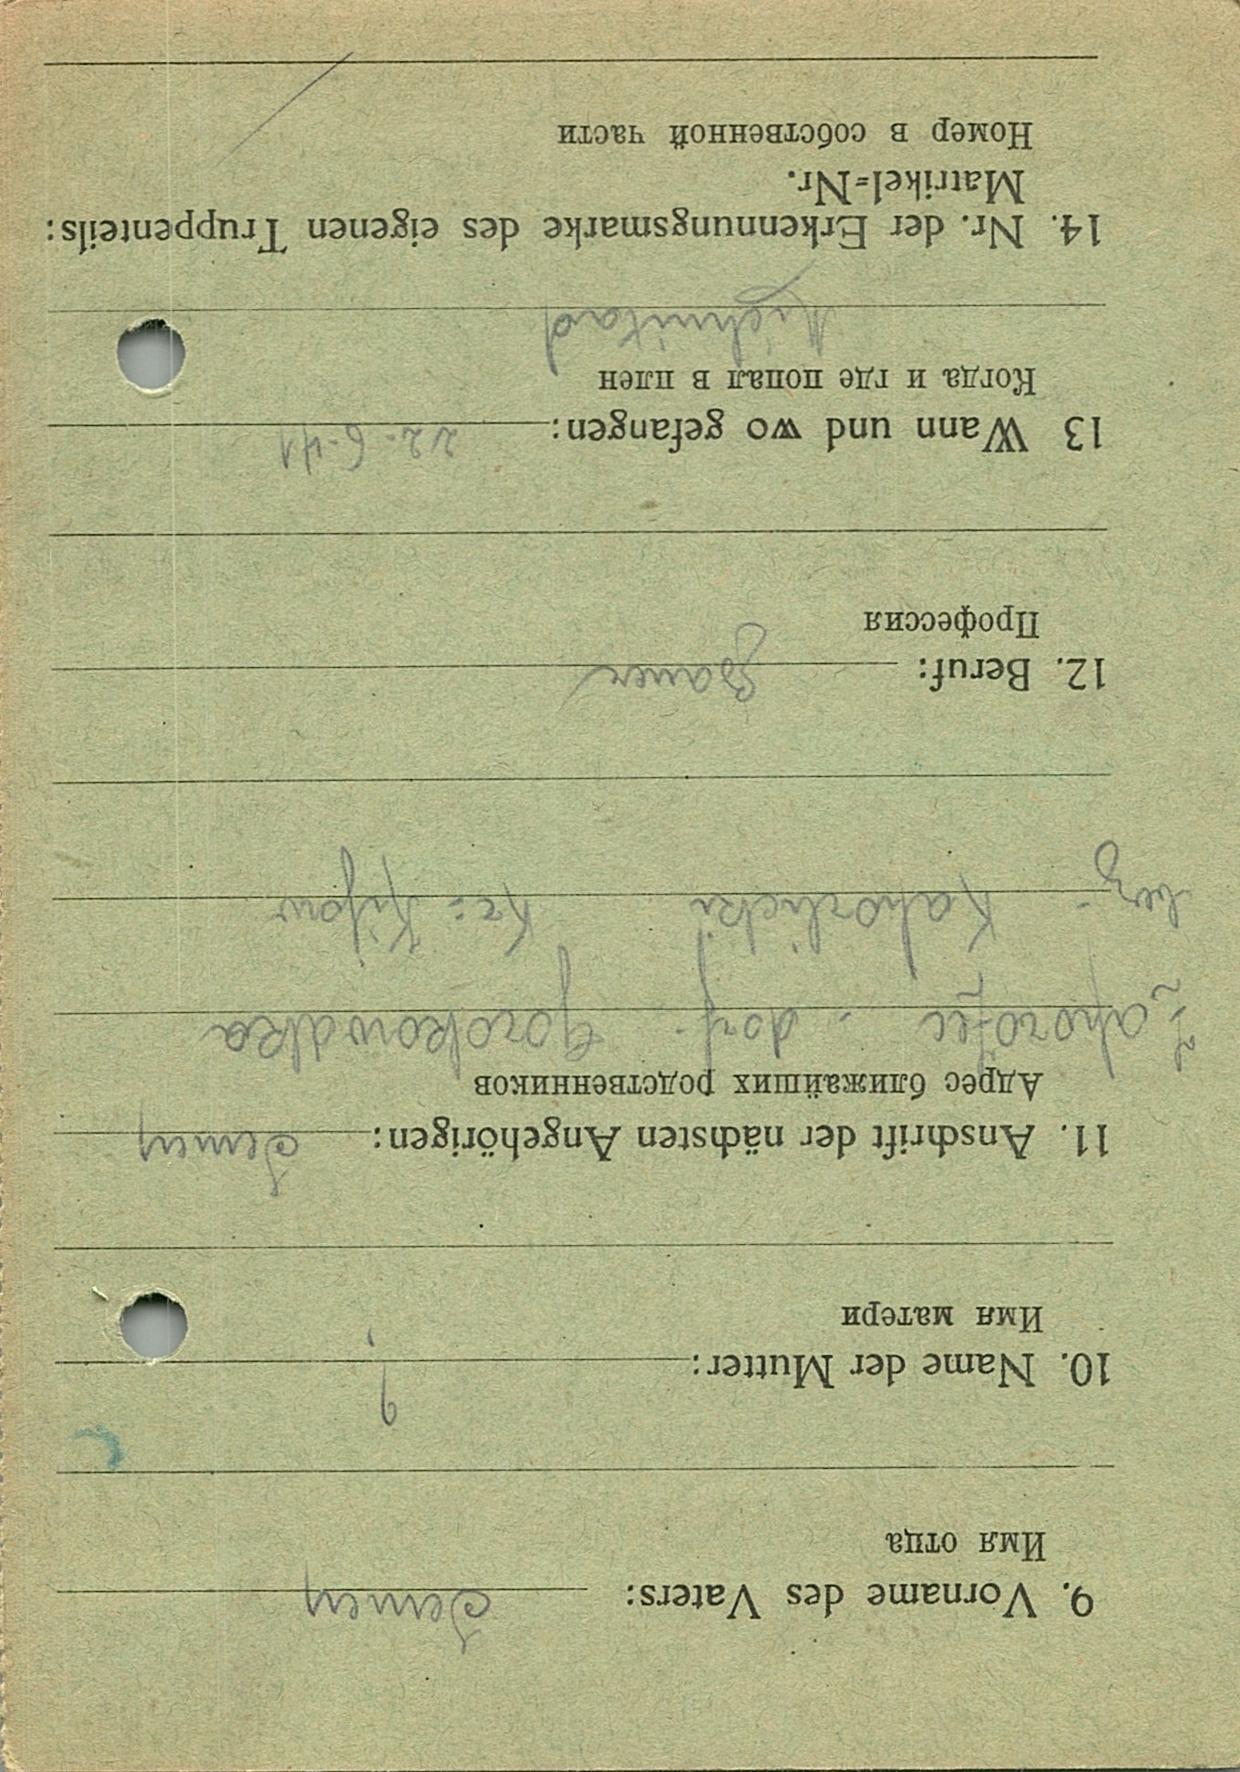 9. Vorname des Vaters: Semen
Имя отца
10. Name der Mutter: ?
Имя матери
11. Anschrift der nächsten Angehörigen: Semen
Адрес ближайших родственников
dorf. Gorokowatka
bez- Kaharlicki Kr: Kijow
12. Beruf: Bauer
Профессия
13 Wann und wo gefangen: 22-6-41
Когда и где попал в плен
14. Nr. der Erkennungsmarke des eigenen Truppenteils:
Matrikel=Nr.
Номер в собственной части